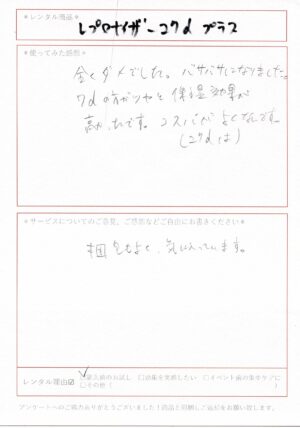 ＊レンタル商品＊
レプロナイザー27d プラス
＊使ってみた感想＊
全くダメでした。バサバサになりました。
7dの方がツヤと保湿効果が
高かったです。コスパがよくないです。
(27dは)
＊サービスについてのご意見、ご感想などご自由にお書きください＊
梱包もよく、気に入っています。
レンタル理由☑
✓購入前のお試し □効果を実感したい □イベント前の集中ケアに
□その他（ ）
アンケートへのご協力ありがとうございました！商品と同梱しご返却をお願い致します。